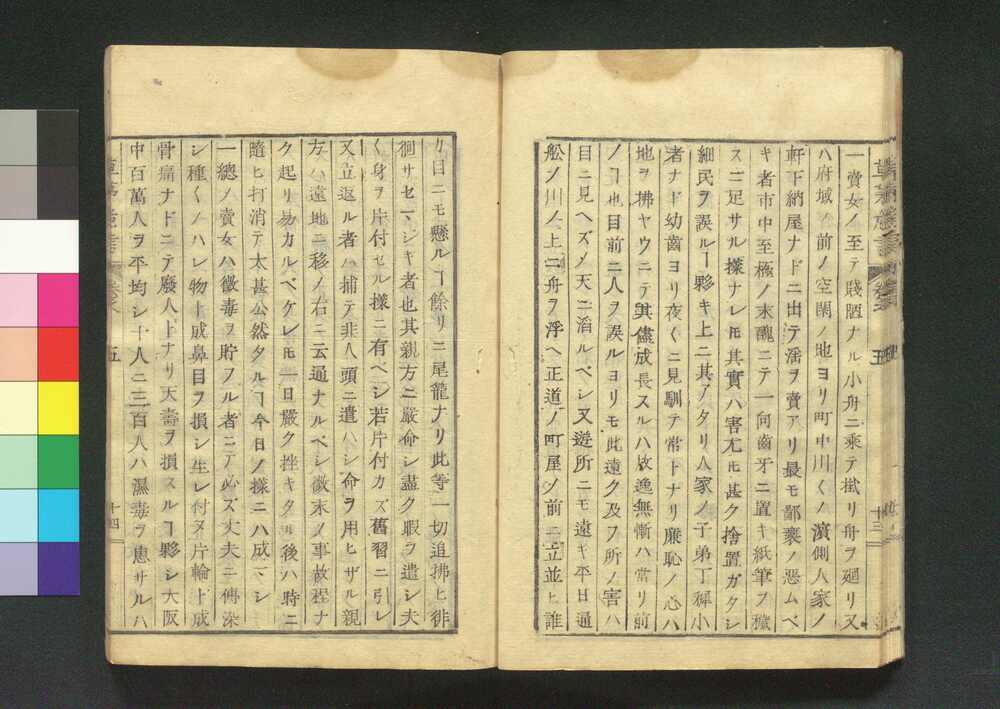 一賣女ノ至テ賤陋ナル小舟ニ乘テ槭リ舟ヲ廻リ又
ハ府域ノ前ノ空閑ノ地ヨリ町中川くノ濵側人家ノ
軒下納屋ナドニ出テ滛ヲ賣アリ最モ鄙褻ノ惡ムベ
キ者市中至極ノ末醜ニテ一向齒牙ニ置キ紙筆ヲ穢
スニ足サル樣ナレ𪜈其實ハ害尤𪜈甚ク捨置ガタシ
細民ヲ誤ルヿ夥キ上ニ其アタリ人家ノ子弟丁穉小
者ナド幼齒ヨリ夜くニ見馴テ常トナリ廉恥ノ心ハ
地ヲ拂ヤウニテ其儘成長スルハ放逸無慚ハ當リ前
ノヿ也目前ニ人ヲ誤ルヨリモ此遠ク及フ所ノ害ハ
目ニ見ヘズノ天ニ滔ルベシ又遊所ニモ遠キ平日通
舩ノ川ノ上ニ舟ヲ浮ヘ正道ノ町屋ノ前ニ立並ヒ誰
草茅危言
五
十三
リ日ニモ懸ルヿ餘リニ尾籠ナリ此等一切追拂ヒ徘
徊サセマシキ者也其親方ニ嚴命シ盡ク暇ヲ遣シ夫
く身ヲ片付セル樣ニ有ヘシ若片付カズ舊習ニ引レ
又立返ル者ハ捕テ非人頭ニ遣ハシ命ヲ用ヒザル親
方ハ遠地ニ移ノ右ニ云通ナルベシ微末ノ事故裎ナ
ク起リ易カルベケレ𪜈一日嚴ク挫キタル後ハ時ニ
隨ヒ打消テ太甚公然タルヿ今日ノ樣ニハ成マシ
一總ノ賣女ハ黴毒ヲ貯フル者ニテ必ズ丈夫ニ傳染
シ種くノハレ物ト成鼻目ヲ損シ生レ付タ片輪ト成
骨痛ナドニテ廢人トナリ天壽ヲ損スルヿ夥シ大阪
中百萬人ヲ平均シ十人ニ三百人ハ濕毒ヲ患サルハ
草茅危言
五
十四